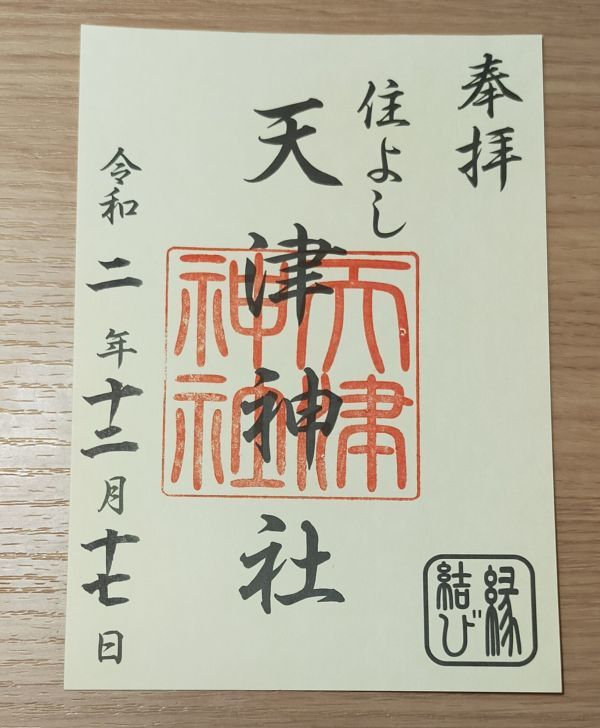 奉拝
住よし
天津神社
天津
神社
令和二年十二月十七日
縁
結び